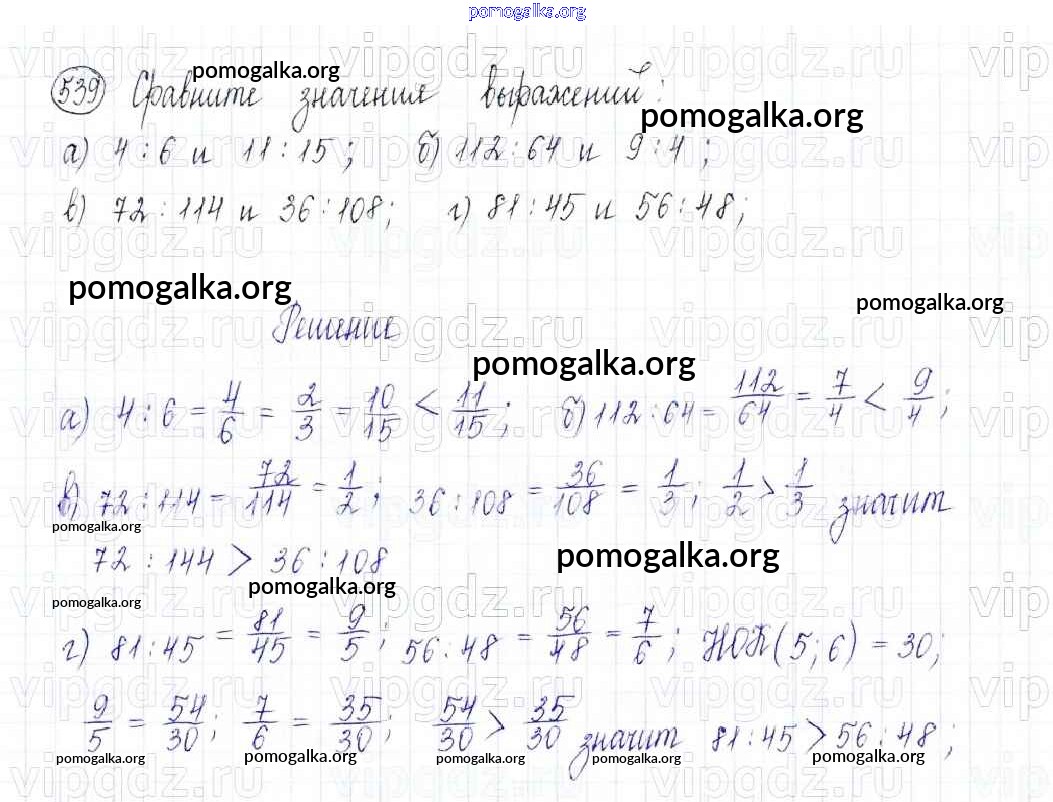 pomogalka.org
539 Сравните значения выражений:
pomogalka.org
pomogalka.org
а) 4 : 6 и 11 : 15; б) 112 : 64 и 9 : 4;
в) 72 : 114 и 36 : 108; г) 81 : 45 и 56 : 48;
pomogalka.org
pomogalka.org
Решение
pomogalka.org
а) 4 : 6 = 4/6 = 2/3 = 10/15 < 11/15; б) 112 : 64 = 112/64 = 7/4 < 9/4;
в) 72 : 114 = 72/114 = 1/2; 36 : 108 = 36/108 = 1/3; 1/2 > 1/3 значит
pomogalka.org
72 : 144 > 36 : 108
pomogalka.org
pomogalka.org
pomogalka.org
г) 81 : 45 = 81/45 = 9/5; 56 : 48 = 56/48 = 7/6; НОК(5; 6) = 30;
9/5 = 54/30; 7/6 = 35/30; 54/30 > 35/30 значит 81 : 45 > 56 : 48;
pomogalka.org pomogalka.org pomogalka.org pomogalka.org pomogalka.org
vipgdz.ru